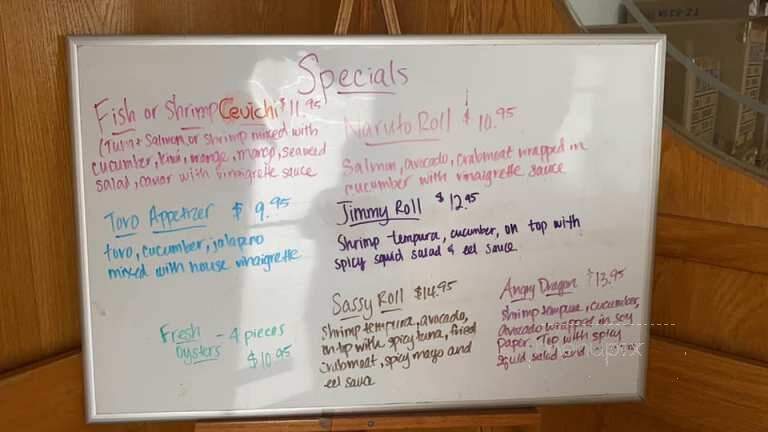 Specials
Fish or Shrimp Cevichi $11.95
(Tuna + Salmon or shrimp mixed with
cucumber, kiwi, orange, mango, seaweed
salad, caviar with vinaigrette sauce
Naruto Roll $10.95
Salmon, avocado, crabmeat wrapped in
cucumber with vinaigrette sauce
Toro Appetizer $9.95
toro, cucumber, jalapeno
mixed with house vinaigrette
Jimmy Roll $12.95
Shrimp tempura, cucumber, on top with
spicy squid salad & eel sauce
Fresh Oysters - 4 pieces
$10.95
Sassy Roll $14.95
shrimp tempura, avocado,
on top with spicy tuna, fried
crabmeat, spicy mayo and
eel sauce
Angry Dragon $13.95
shrimp tempura, cucumber,
avocado wrapped in soy
paper. Top with spicy
squid salad and